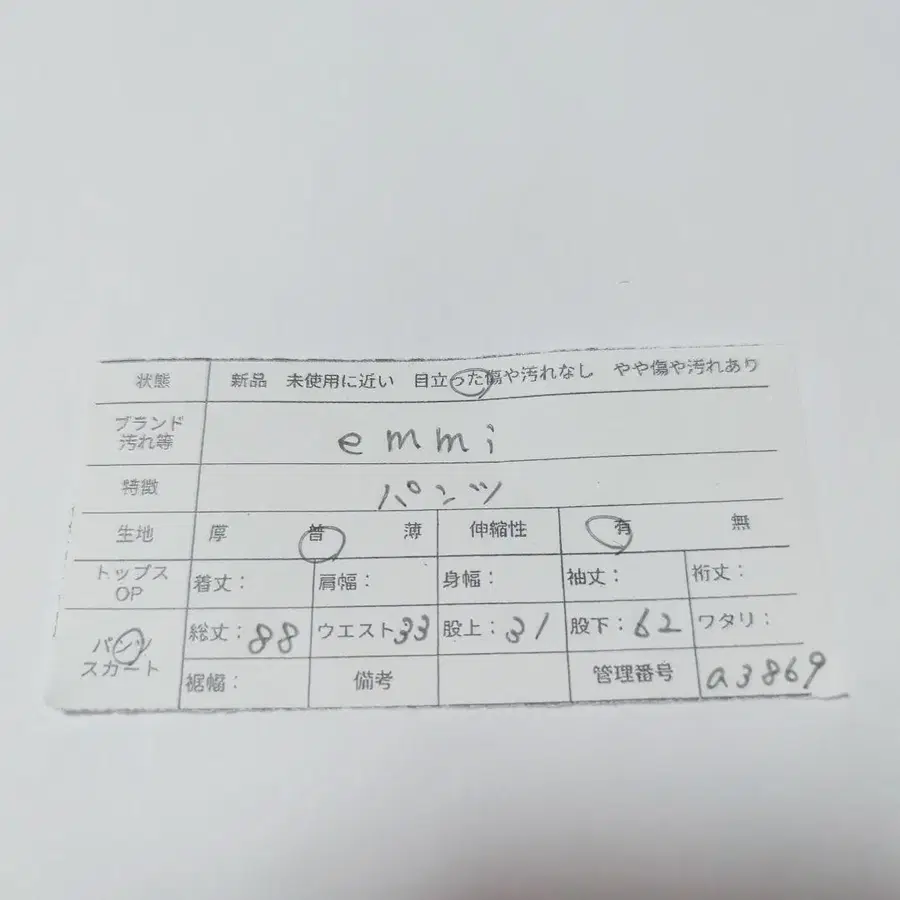 状態 新品 未使用に近い 目立った傷や汚れなし やや傷や汚れあり
ブランド
汚れ等
emmi
特徴 パンツ
生地 厚 普 薄 伸縮性 有 無
トップス
OP
着丈： 肩幅： 身幅： 袖丈： 裄丈：
パンツ
スカート
総丈：88 ウエスト33 股上：31 股下：62 ワタリ：
裾幅： 備考 管理番号 a3869